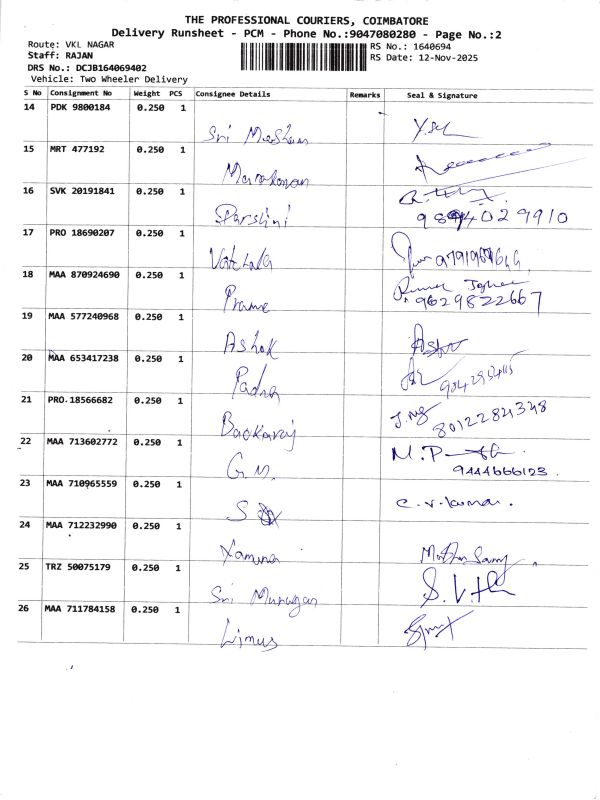 THE PROFESSIONAL COURIERS, COIMBATORE
Delivery Runsheet - PCM - Phone No.:9047080280 - Page No.:2
Route: VKL NAGAR
RS No.: 1640694
Staff: RAJAN
RS Date: 12-Nov-2025
DRS No.: DCJB164069402
Vehicle: Two Wheeler Delivery
S No Consignment No Weight PCS Consignee Details Remarks Seal & Signature
14 PDK 9800184 0.250 1
Sri
15 MRT 477192 0.250 1
16 SVK 20191841 0.250 1
Darshini
9894029910
17 PRO 18690207 0.250 1
Vatchala
18 MAA 870924690 0.250 1
9629822667
19 MAA 577240968 0.250 1
Ashok
20 MAA 653417238 0.250 1
Padma
21 PRO 18566682 0.250 1
Baskaraj
8012284348
22 MAA 713602772 0.250 1
G.M.
M.P
9444666123
23 MAA 710965559 0.250 1
S
C.V.Kumar.
24 MAA 712232990 0.250 1
Yamuna
25 TRZ 50075179 0.250 1
Sri Murugan
26 MAA 711784158 0.250 1
Limus